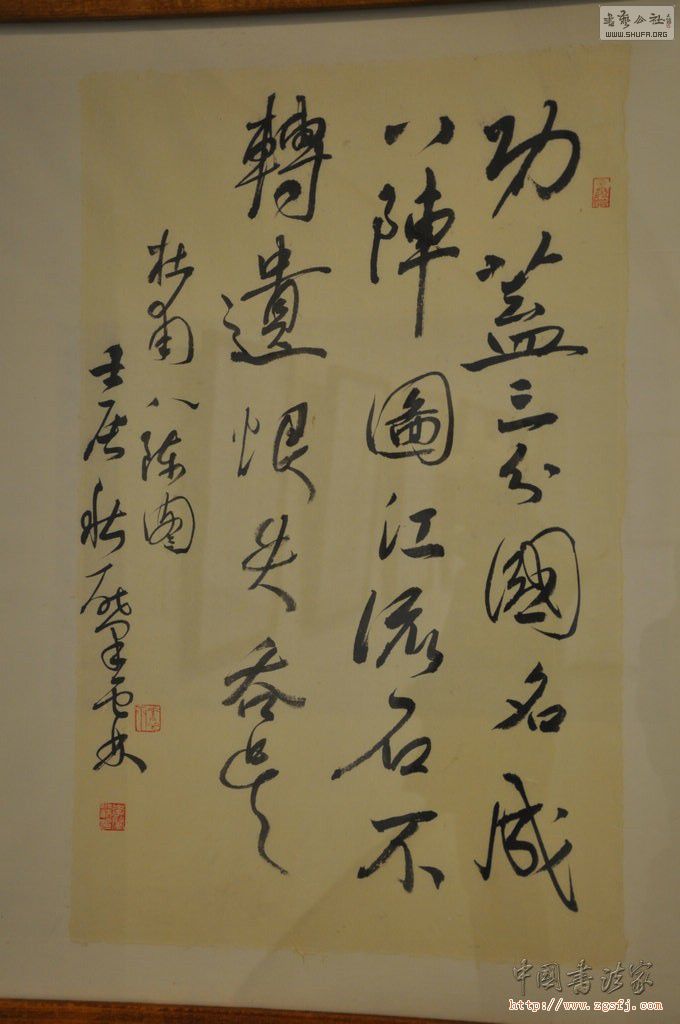 功蓋三分國名成
八陣圖江流石不
轉遺恨失吞吴
杜甫八陣圖
壬辰秋
書藝公社
WWW.SHUFA.ORG
中國書法家
http://www.zgsfj.com